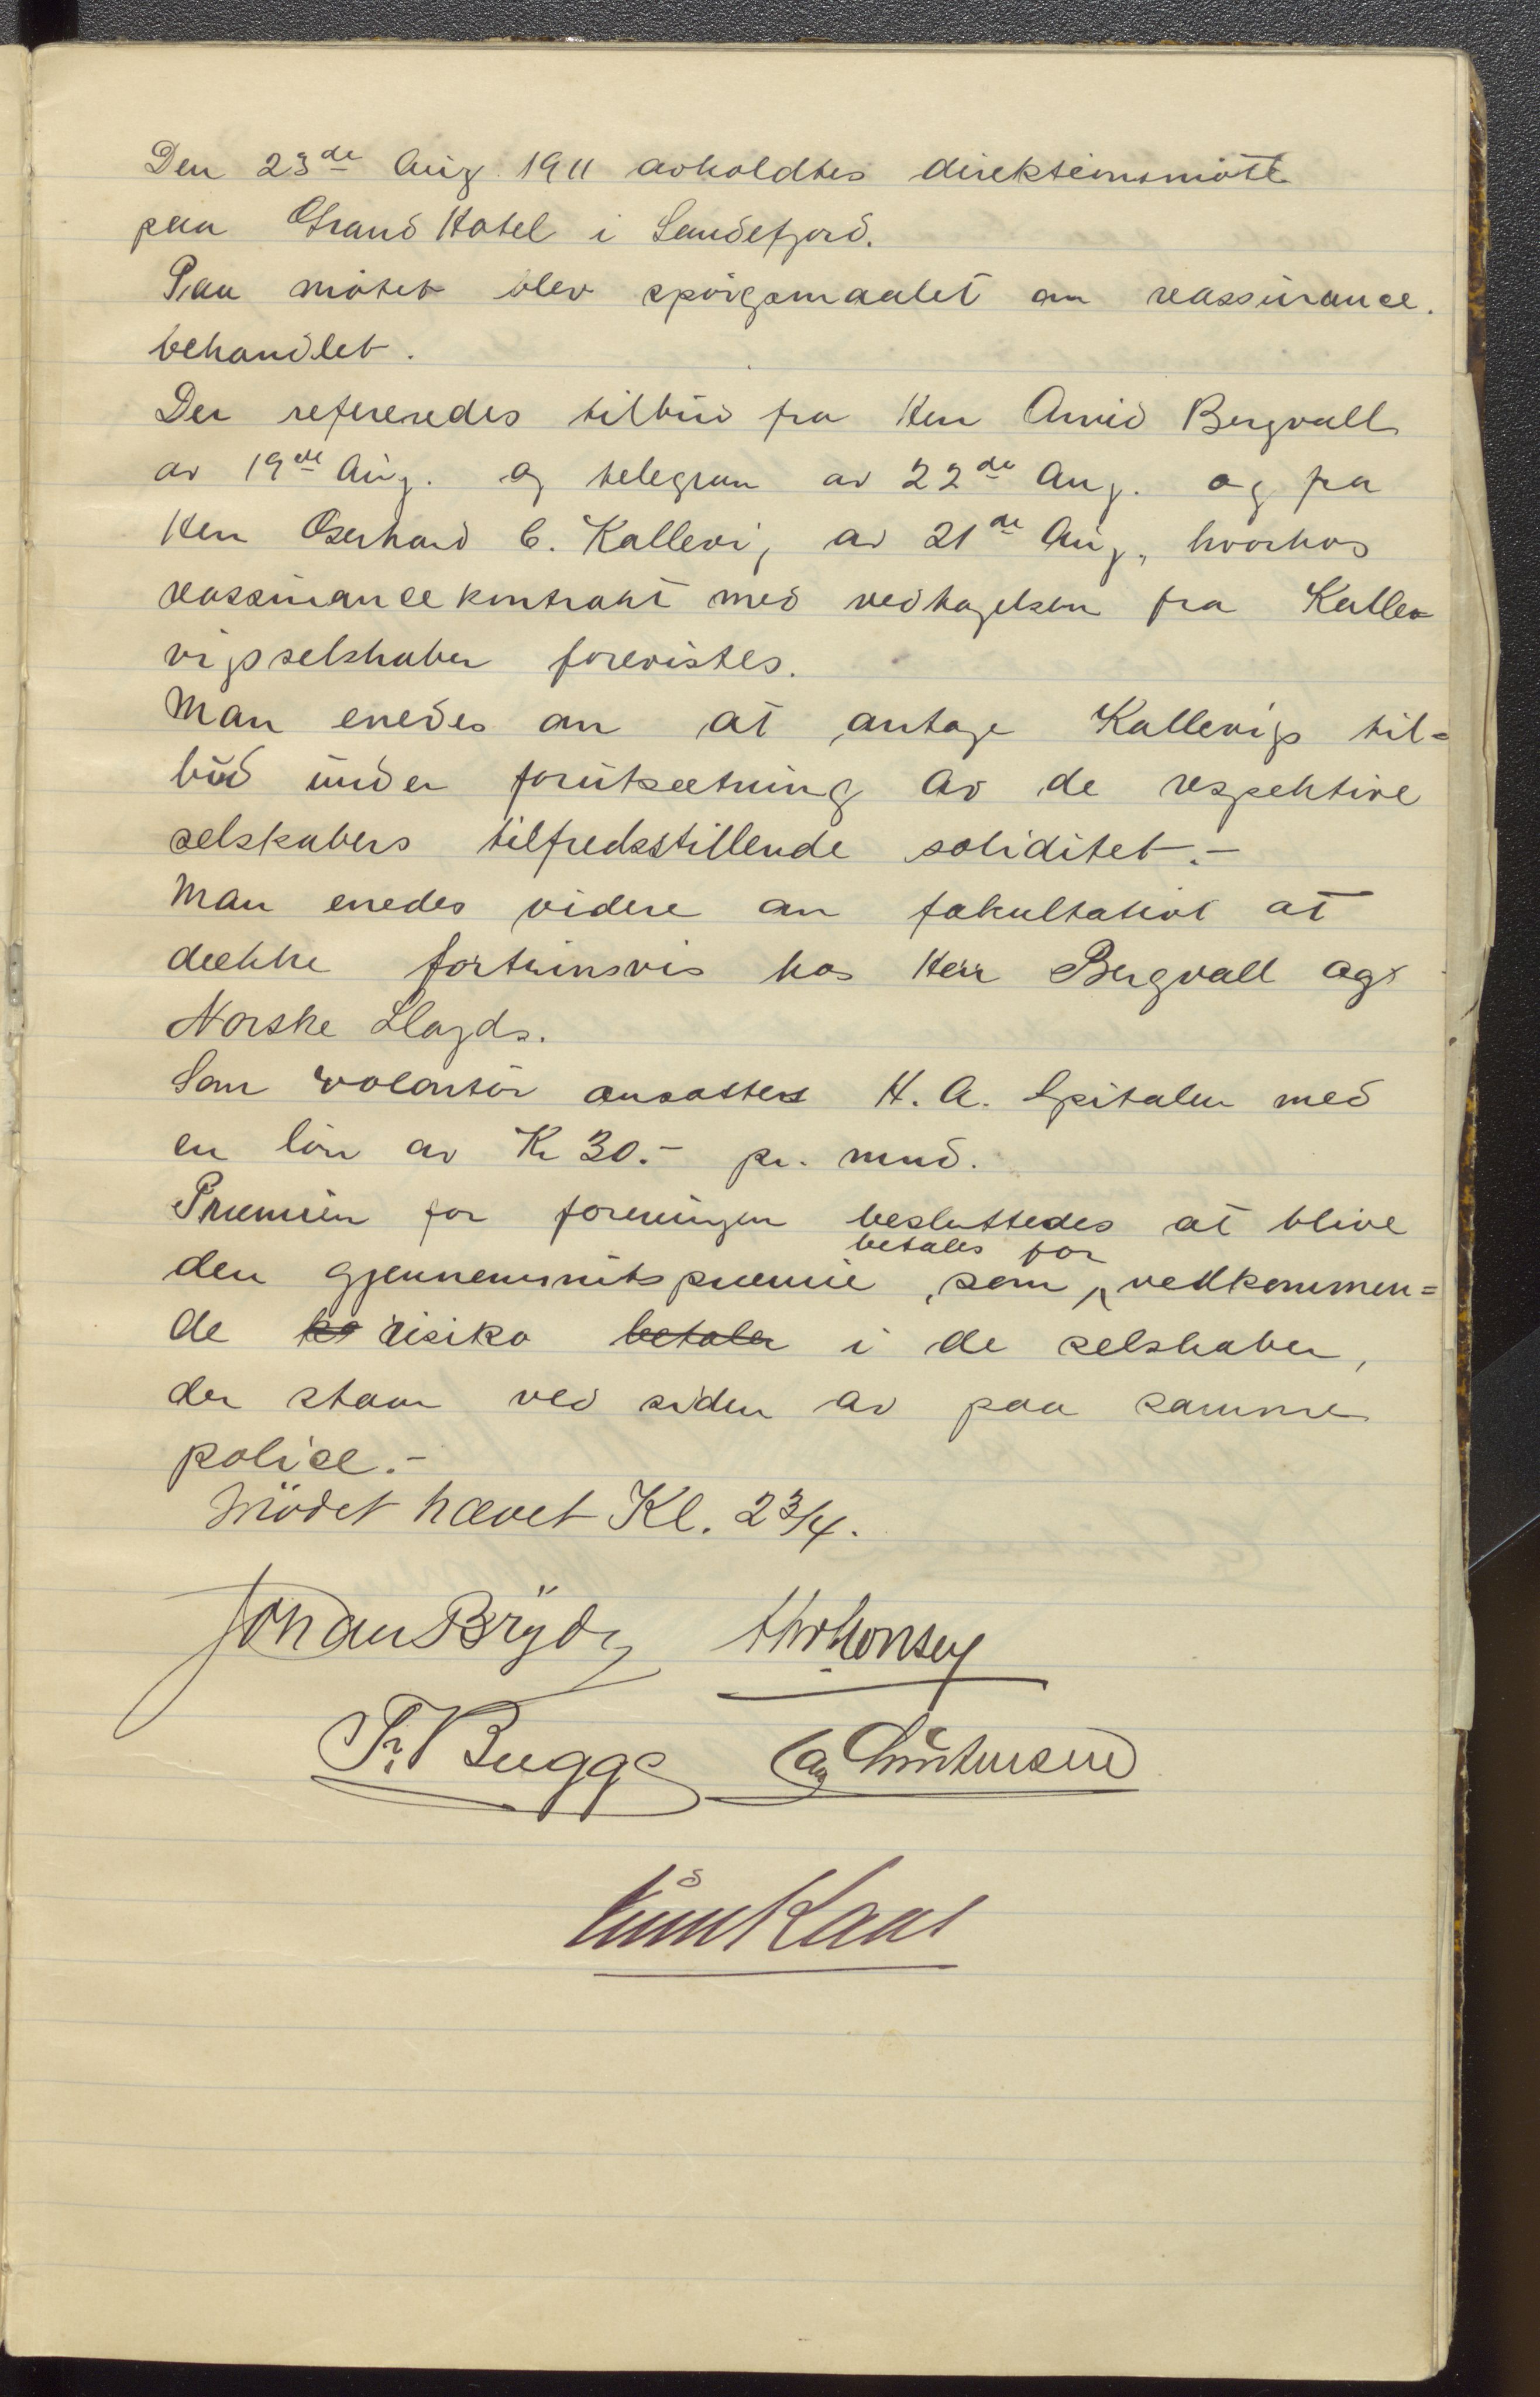 Den 23de Aug. 1911 avholdtes direktionsmöte
paa Grand Hotel i Sandefjord.
Paa mötet blev spörgsmaalet om reassurance.
behandlet.
Der refereredes tilbud fra Herr Arvid Bergvall
av 19de Aug. og telegram av 22de Aug. og fra
Herr Gerhard C. Kallevig av 21de Aug., hvorhos
reassurancekontrakt med vedtagelsen fra Kalle
vigsselskaber forevistes.
Man enedes om at antage Kallevigs til=
bud under forutsætning av de respektive
selskabers tilfredsstillende soliditet.-
Man enedes videre om fakultativt at
dække fortrinsvis hos Herr Bergvall og
Norske Lloyds.
Som volontör ansattes H. A. Spitalen med
en lön av Kr 30.- pr. mnd.
Præmien for foreningen besluttedes at blive
betales for
den gjennemsnitspræmie, som vedkommen=
de risiko betaler i de selskaber,
der staar ved siden av paa samme
police.-
Mödet hævet Kl. 2 3/4.
Johan Bryde Thv Monsen
Fr. Bugge Aug Christensen
Kaas